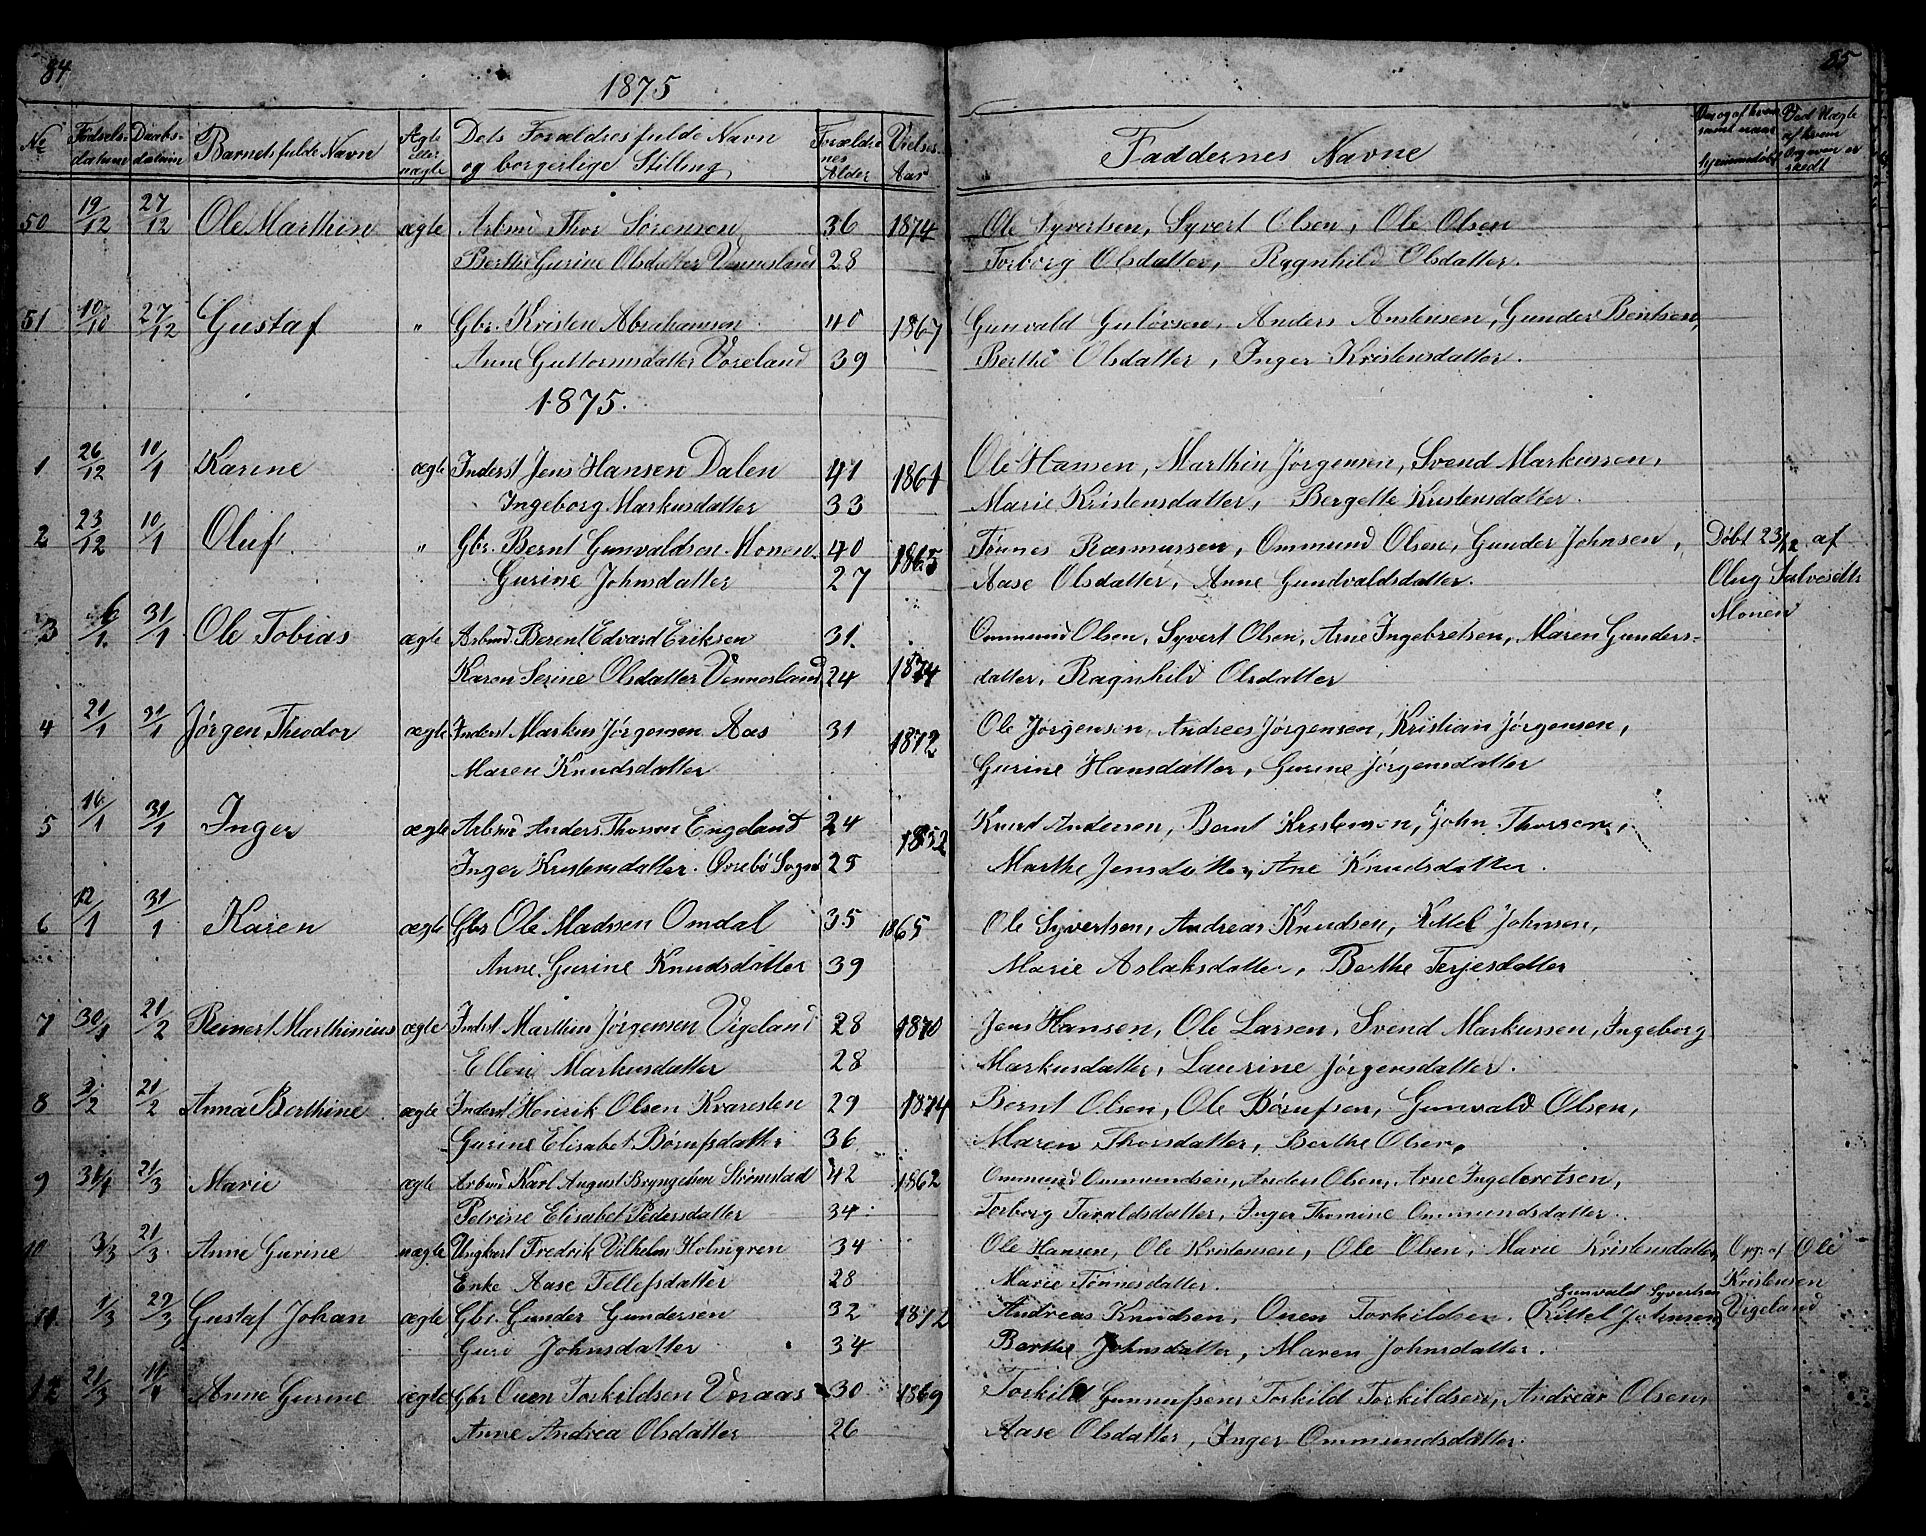 84
1875
No
Fødsels-
datum
Daabs-
datum
Barnets fulde Navn
Ægte
eller
uægte
Dets Forældres fulde Navn
og borgerlige Stilling
Forældre-
nes
Alder
Vielses-
Aar
50 19/12 27/12 Ole Marthin ægte Arbmd Thor Sørensen 36 1874
Berthe Gurine Olsdatter Vennesland 28
51 10/10 27/12 Gustaf " Gbr. Kristen Abrahamsen 40 1867
Anne Guttormsdatter Voreland 39
1875.
1 26/12 10/1 Karine ægte Inderst Jens Hansen Dalen 41 1861
Ingeborg Markusdatter 33
2 23/12 10/1 Oluf. " Gbr. Bernt Gunvaldsen Monen 40 1865
Gurine Johnsdatter 27
3 6/1 31/1 Ole Tobias ægte Arbmd. Berent Edvard Eriksen 31.
Karen Serine Olsdatter Vennesland 24 1874
4 21/1 31/1 Jørgen Theodor ægte Inderst Markus Jørgensen Aas 31 1872
Maren Knudsdatter
5 16/1 31/1 Inger ægte Arbmd Anders Thorsen Engeland 24 1852
Inger Kristensdatter. Øvrebø Sogn 25
6 12/1 31/1 Karen ægte Gbr Ole Madsen Omdal 35 1865
Anne Gurine Knudsdatter 39
7 30/1 21/2 Reinert Marthinius ægte Inderst Marthin Jørgensen Vigeland 28 1870
Ellen Markusdatter 28
8 2/2 21/2 Anna Berthine ægte Inderst Henrik Olsen Kvaresten 29 1874
Gurine Elisabet Børufsdattr 36
9 31/1 21/3 Marie ægte Arbmd Karl August Bryngelsen Strømstad 42 1862
Petrine Elisabet Pedersdatter 34
10 3/3 21/3 Anne Gurine uægte Ungkarl Fredrik Vilhelm Holmgren 34
Enke Aase Tellefsdatter 28
11 1/3 29/3 Gustaf Johan ægte Gbr. Gunder Gundersen 32 1872
Guro Johnsdatter 34
12 21/3 11/4 Anne Gurine ægte Gbr Ouen Torkildsen Voraas 30 1869
Anne Andrea Olsdatter 26
85
Faddernes Navne
Ved Uægte
af hvem
Opgaven er
skedt
Ole Syvertsen, Syvert Olsen, Ole Olsen
Torborg Olsdatter, Ragnhild Olsdatter.
Gunvald Guløvsen, Anders Anstensen, Gunder Bentsen,
Berthe Olsdatter, Inger Kristensdatter.
Ole Hansen, Marthin Jørgensen, Svend Markussen,
Marie Kristensdatter, Bergette Kristensdatter.
Tønnes Rasmussen, Ommund Olsen, Gunder Johnsen, Døbt 23/12 af
Aase Olsdatter, Anne Gundvaldsdatter. Olug Salvesdtr
Monen
Ommund Olsen, Syvert Olsen, Arne Ingebretsen, Maren Gunders-
datter, Ragnhild Olsdatter
Ole Jørgensen, Andreas Jørgensen, Kristian Jørgensen,
Gurine Hansdatter, Gurine Jørgensdatter
Knud Andersen, Bernt Kristensen, John Thorsen,
Marthe Jensdatter, Ane Knudsdatter.
Ole Syvertsen, Andreas Knudsen, Kittel Johnsen,
Marie Aslaksdatter, Berthe Terjesdatter
Jens Hansen, Ole Larsen, Svend Markussen, Ingeborg
Markusdatter, Laurine Jørgensdatter.
Bernt Olsen, Ole Børufsen, Gunvald Olsen,
Maren Thorsdatter, Berthe Olsen,
Ommund Ommundsen, Anders Olsen, Arne Ingebretsen,
Torborg Taraldsdatter, Inger Thomine Ommundsdatter.
Ole Hansen, Ole Kristensen, Ole Olsen, Marie Kristensdatter, Opg. af Ole
Marie Tønnesdatter. Kristensen
Gunvald Syvertsen
Andreas Knudsen, Ouen Torkildsen, (Kittel Johnsen) Vigeland
Berthe Johnsdatter, Maren Johnsdatter.
Torkild Gunnufsen, Torkild Torkildsen, Andreas Olsen,
Aase Olsdatter, Inger Ommundsdatter.